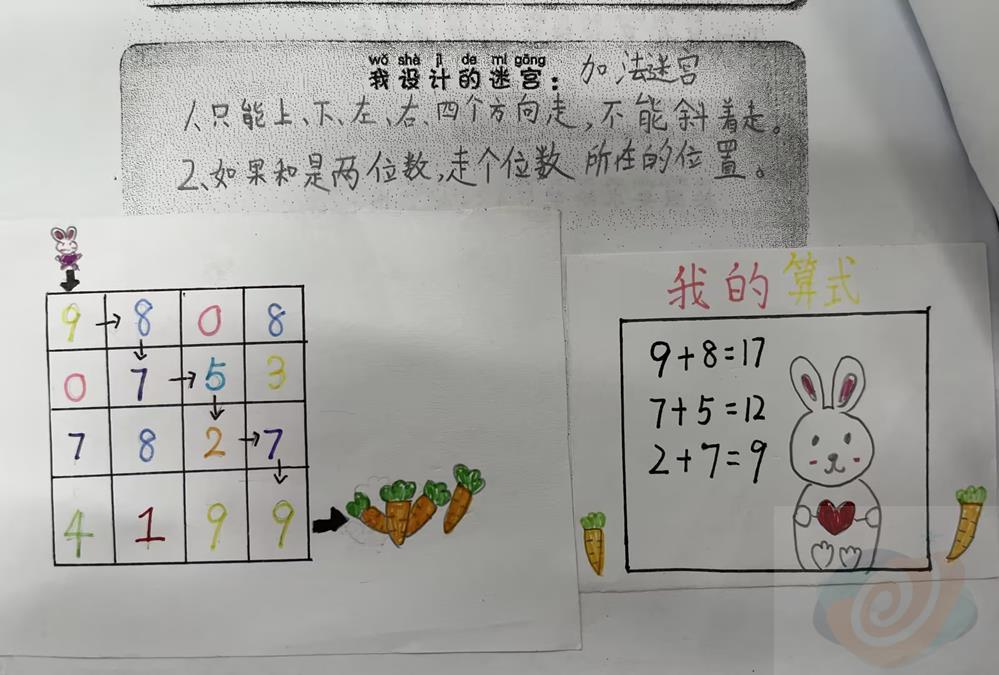 wǒ shè jì de mí gōng
我设计的迷宫：加法迷宫
1、只能上、下、左、右、四个方向走，不能斜着走。
2、如果和是两位数，走个位数所在的位置。
9→8 0 8
0 7→5 3
7 8 2→7
4 1 9 9
我的算式
9+8=17
7+5=12
2+7=9